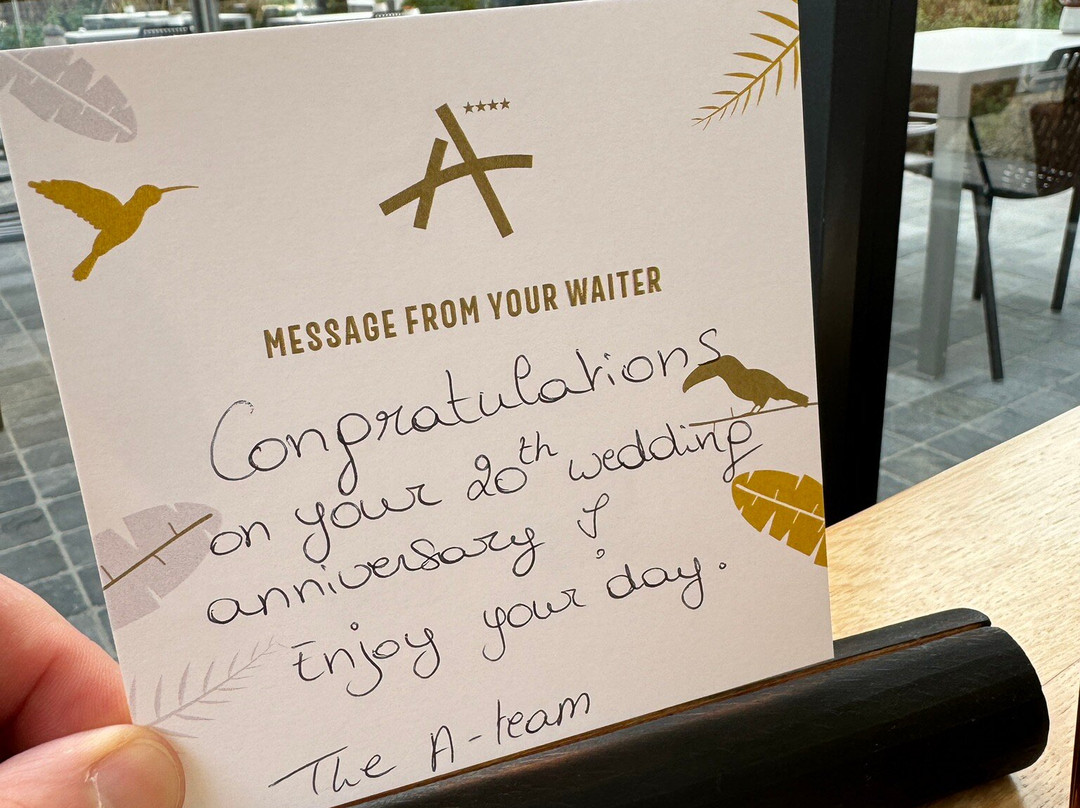 A ★★★★
MESSAGE FROM YOUR WAITER
Congratulations
on your 20th wedding
anniversary !
Enjoy your day.
The A-team